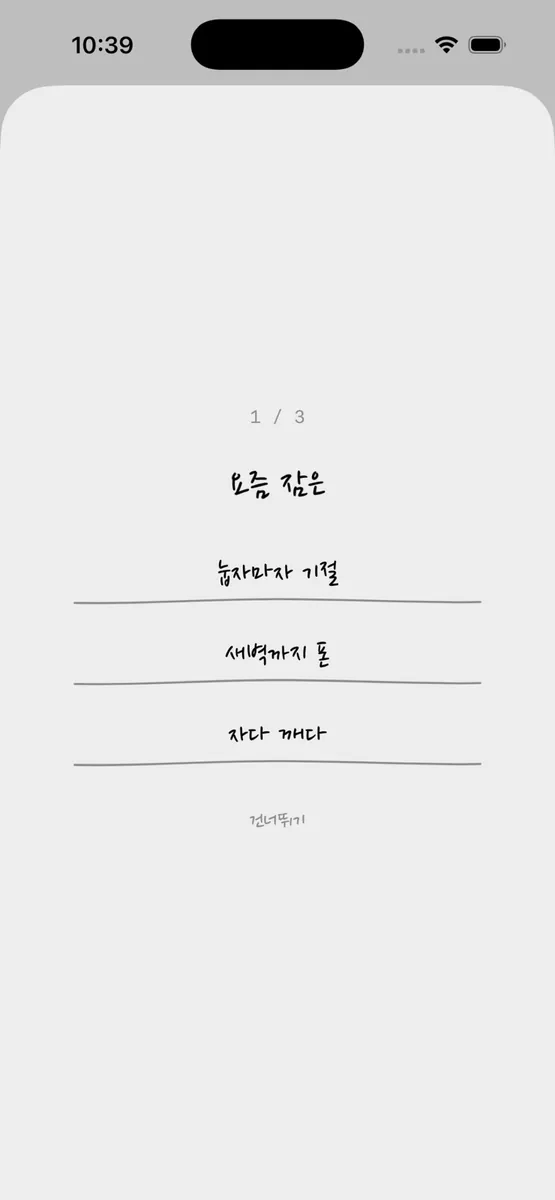 10:39
1 / 3
요즘 잠은
눕자마자 기절
새벽까지 폰
자다 깨다
건너뛰기